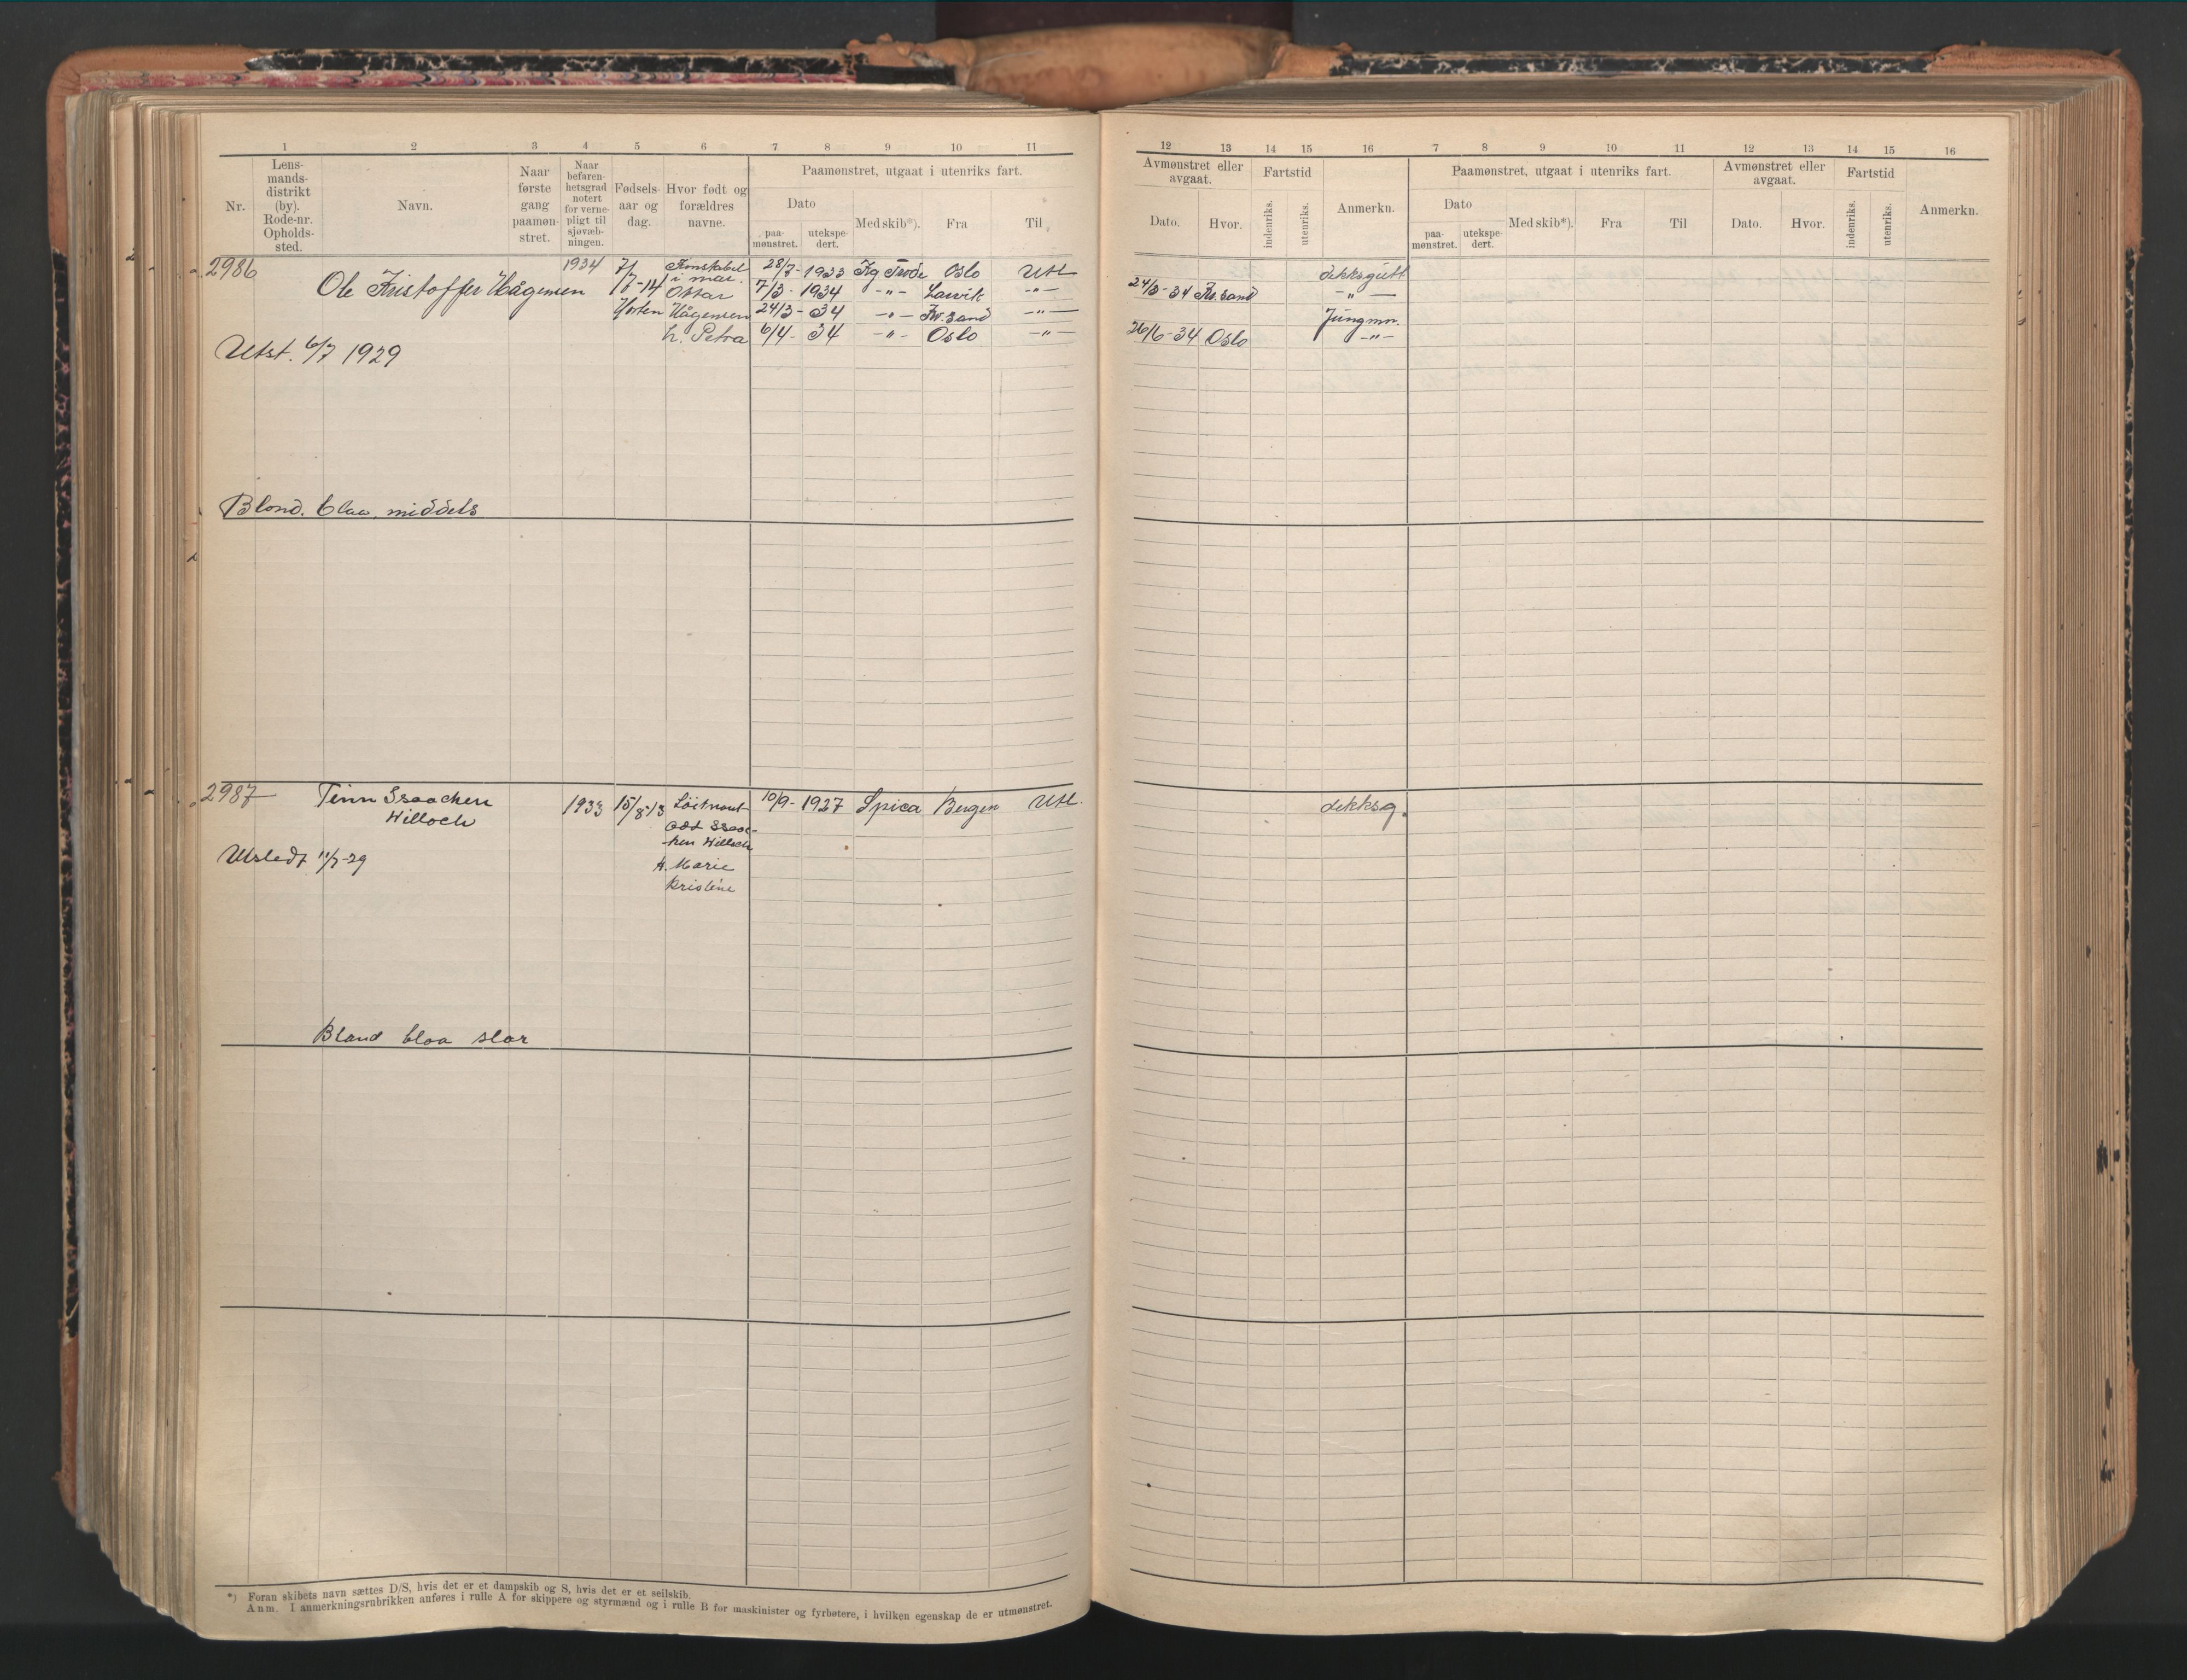 1 2 3 4 5 6 7 8 9 10 11
Nr.
Lens-
mands-
distrikt
(by).
Rode-nr.
Opholds-
sted.
Navn.
Naar
første
gang
paamøn-
stret.
Naar
befaren-
hetsgrad
notert
for verne-
pligt til
sjøvæb-
ningen.
Fødsels-
aar og
dag.
Hvor født og
forældres
navne.
Paamønstret, utgaat i utenriks fart.
Dato
paa-
mønstret.
utekspe-
dert.
Med skib*).
Fra
Til
2986
Ole Kristoffer Hågensen
1934
7/7-14
Horten
Konstabel
i mar.
Ottar
Hågensen
h. Petra
28/7- 1933 Kg Frode Oslo Utl
7/3- 1934 -"- Larvik -"-
24/3- 34 -"- Kr.sand -"-
6/4- 34 -"- Oslo -"-
Utst. 6/7 1929
Blond. blaa, middels
2987
Finn Isaachen
Willoch
1933 15/8 13
Löitnant
Odd Isaac-
hen Willoch
h. Marie
Kristine
10/9- 1927 Spica Bergen Utl.
Utstedt 11/7-29
Blond blaa stor
*) Foran skibets navn sættes D/S, hvis det er et dampskib og S, hvis det er et seilskib.
Anm. I anmerkningsrubrikken anføres i rulle A for skippere og styrmænd og i rulle B for maskinister og fyrbøtere, i hvilken egenskap de er utmønstret.
12 13 14 15 16 7 8 9 10 11 12 13 14 15 16
Avmønstret eller
avgaat.
Dato.
Hvor.
Fartstid
indenriks.
utenriks.
Anmerkn.
Paamønstret, utgaat i utenriks fart.
Dato
paa-
mønstret.
utekspe-
dert.
Med skib*).
Fra
Til
Avmønstret eller
avgaat.
Dato.
Hvor.
Fartstid
indenriks.
utenriks.
Anmerkn.
dekksgutt
24/3-34 Kr.sand -"-
Jungmn.
26/6-34 Oslo -"-
dekksg.